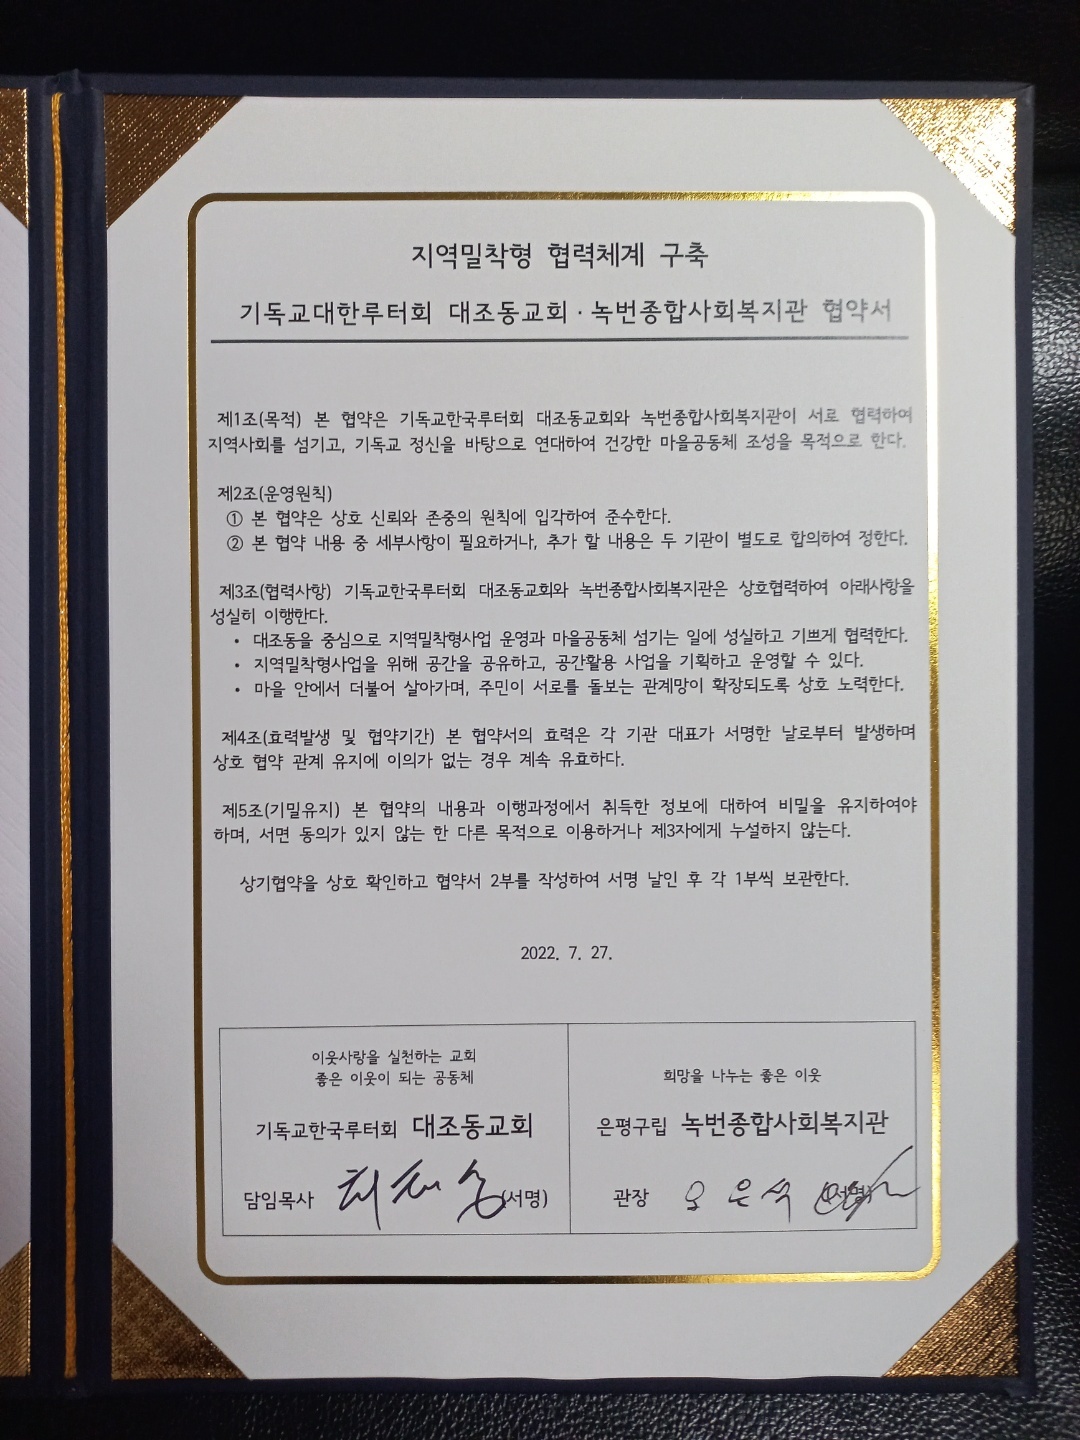 지역밀착형 협력체계 구축
기독교대한루터회 대조동교회 · 녹번종합사회복지관 협약서
제1조(목적) 본 협약은 기독교한국루터회 대조동교회와 녹번종합사회복지관이 서로 협력하여
지역사회를 섬기고, 기독교 정신을 바탕으로 연대하여 건강한 마을공동체 조성을 목적으로 한다.
제2조(운영원칙)
① 본 협약은 상호 신뢰와 존중의 원칙에 입각하여 준수한다.
② 본 협약 내용 중 세부사항이 필요하거나, 추가 할 내용은 두 기관이 별도로 합의하여 정한다.
제3조(협력사항) 기독교한국루터회 대조동교회와 녹번종합사회복지관은 상호협력하여 아래사항을
성실히 이행한다.
• 대조동을 중심으로 지역밀착형사업 운영과 마을공동체 섬기는 일에 성실하고 기쁘게 협력한다.
• 지역밀착형사업을 위해 공간을 공유하고, 공간활용 사업을 기획하고 운영할 수 있다.
• 마을 안에서 더불어 살아가며, 주민이 서로를 돌보는 관계망이 확장되도록 상호 노력한다.
제4조(효력발생 및 협약기간) 본 협약서의 효력은 각 기관 대표가 서명한 날로부터 발생하며
상호 협약 관계 유지에 이의가 없는 경우 계속 유효하다.
제5조(기밀유지) 본 협약의 내용과 이행과정에서 취득한 정보에 대하여 비밀을 유지하여야
하며, 서면 동의가 있지 않는 한 다른 목적으로 이용하거나 제3자에게 누설하지 않는다.
상기협약을 상호 확인하고 협약서 2부를 작성하여 서명 날인 후 각 1부씩 보관한다.
2022. 7. 27.
이웃사랑을 실천하는 교회
좋은 이웃이 되는 공동체
기독교한국루터회 대조동교회
담임목사 (서명)
희망을 나누는 좋은 이웃
은평구립 녹번종합사회복지관
관장 오은석 (서명)